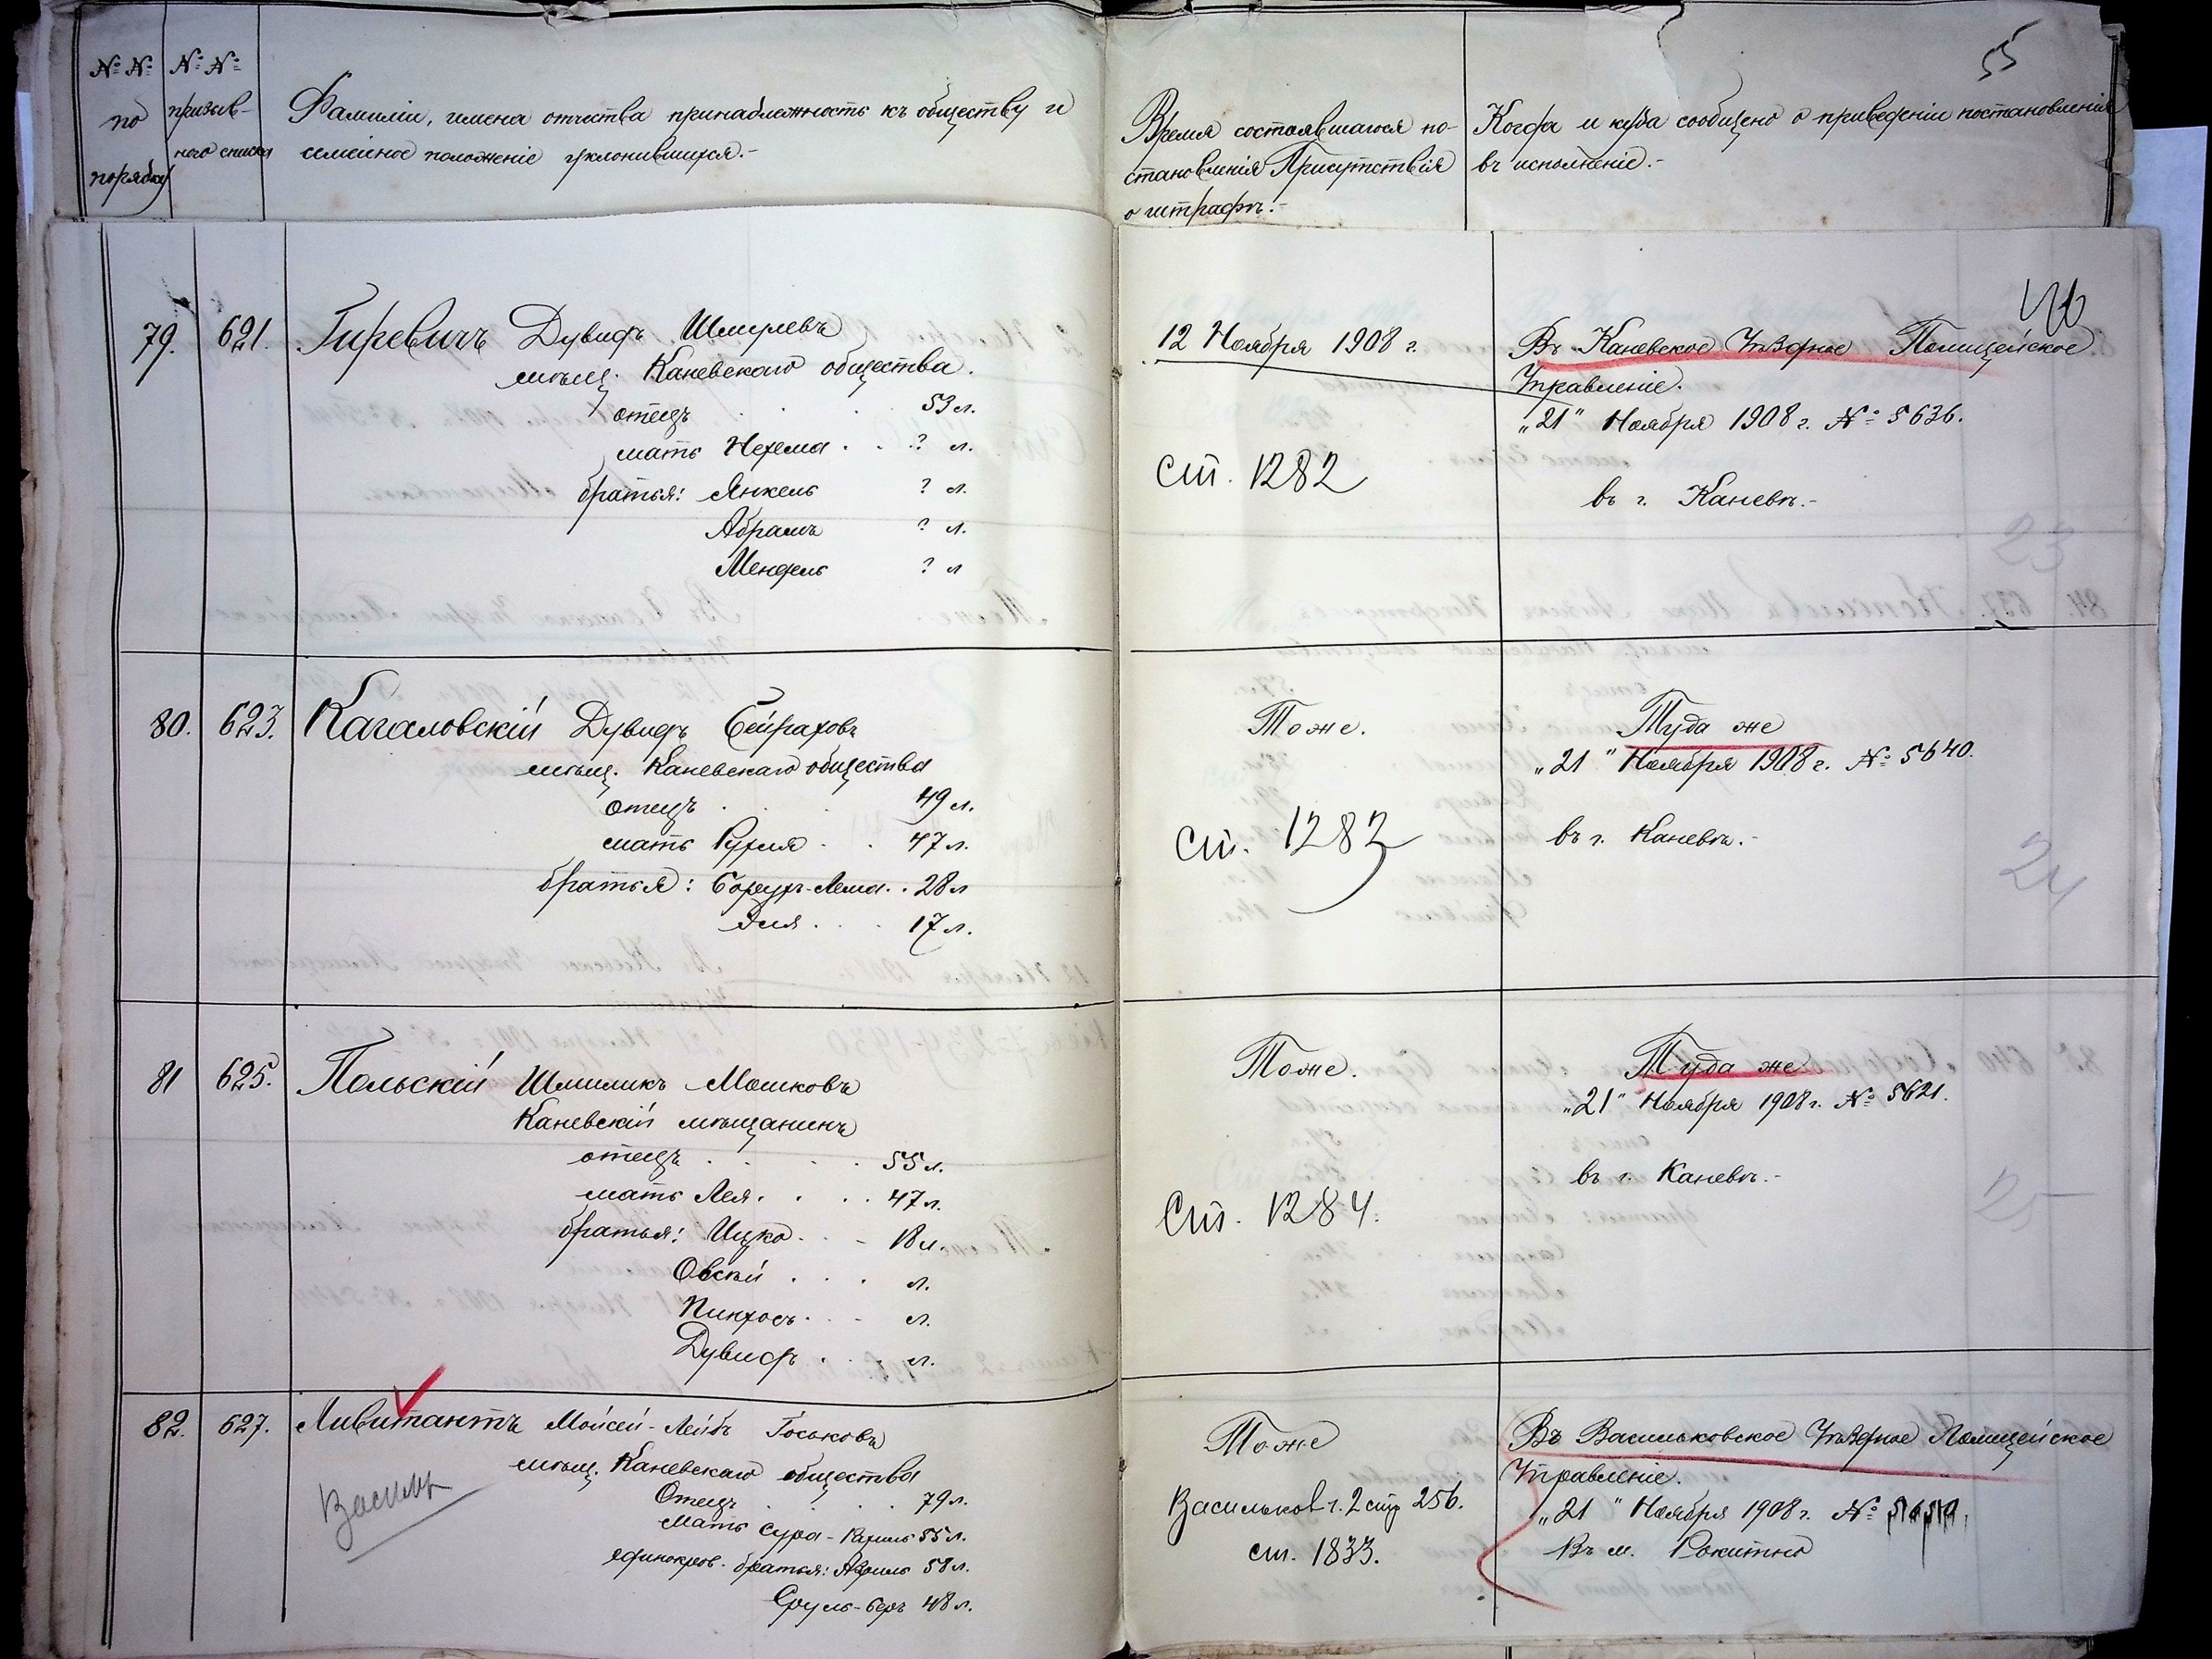 55
№ №
по
порядку
№ №
призыв-
ного списка
Фамиліи, имена отчества принадлежность къ обществу и
семейное положеніе уклонившихся.-
Время состоявшагося по-
становленія Присутствія
о штрафѣ.-
Когда и куда сообщено о приведеніи постановленія
въ исполненіе.-
79. 621. Гуревичъ Дувидъ Шмулевъ
мѣщ. Каневскаго общества.
отецъ . . . 53 л.
мать Нехема . . ? л.
братья: Янкель ? л.
Абрамъ ? л.
Мендель ? л
12 Ноября 1908 г.
ст. 1282
Въ Каневское Уѣздное Полицейское
Управленіе.
„21" Ноября 1908 г. № 5636.
въ г. Каневѣ.-
23
80. 623. Кагаловскій Дувидъ
мѣщ. Каневскаго общества
отецъ . . . 49 л.
мать Рухля . . 47 л.
братья: Борухъ-Лема . . 28 л
Эля . . . 17 л.
Тоже.
ст. 1283
Туда же
„21" Ноября 1908 г. № 5640.
въ г. Каневѣ.-
24
81 625. Польскій Шмиликъ Мошковъ
Каневскій мѣщанинъ
отецъ . . . . 55 л.
мать Лея . . . . 47 л.
братья: Ицко . . - 18 л.
Овсей . . . л.
Пинхосъ . . - л.
Дувидъ . . . л.
Тоже.
Ст. 1284.
Туда же
„21" Ноября 1908 г. № 5621.
въ г. Каневѣ.-
25
82. 627. Ливитантъ Мойсей-Лейбъ Іоськовъ
мѣщ. Каневскаго общества
Васильк
Отецъ . . . . 79 л.
Мать Сура- 55 л.
единокров. братья: 58 л.
Сруль-Беръ 48 л.
Тоже
Васильков ч. 2 стр 256.
ст. 1833.
Въ Васильковское Уѣздное Полицейское
Управленіе.
„21" Ноября 1908 г. №
Въ м. Рокитно